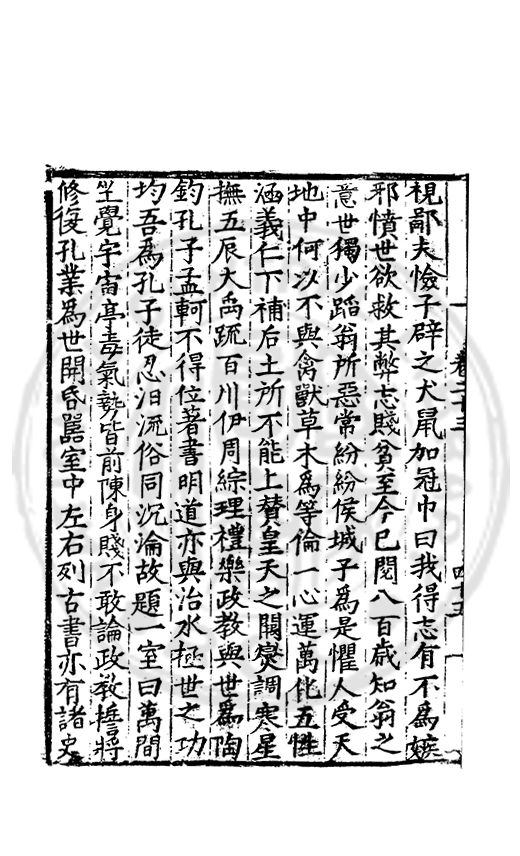 視鄙夫憸子辟之犬鼠加冠巾曰我得志有不為嫉
邪憤世欲救其弊志賤貧至今已閱八百歲知翁之
意世獨少蹈翁所惡常紛紛侯城子為是懼人受天
地中何以不與禽獸草木為等倫一心運萬化五性
涵義仁下補后土所不能上贊皇天之闕燮調寒星
撫五辰大禹疏百川伊周綜理禮樂政教與世為陶
鈞孔子孟軻不得位著書明道亦與治水拯世之功
均吾為孔子徒忍汩流俗同沉淪故題一室曰萬間
坐覺宇宙亭毒氣勢皆前陳身賤不敢論政教誓將
修復孔業為世開昏嚚室中左右列古書亦有諸史
卷二十三
四十五